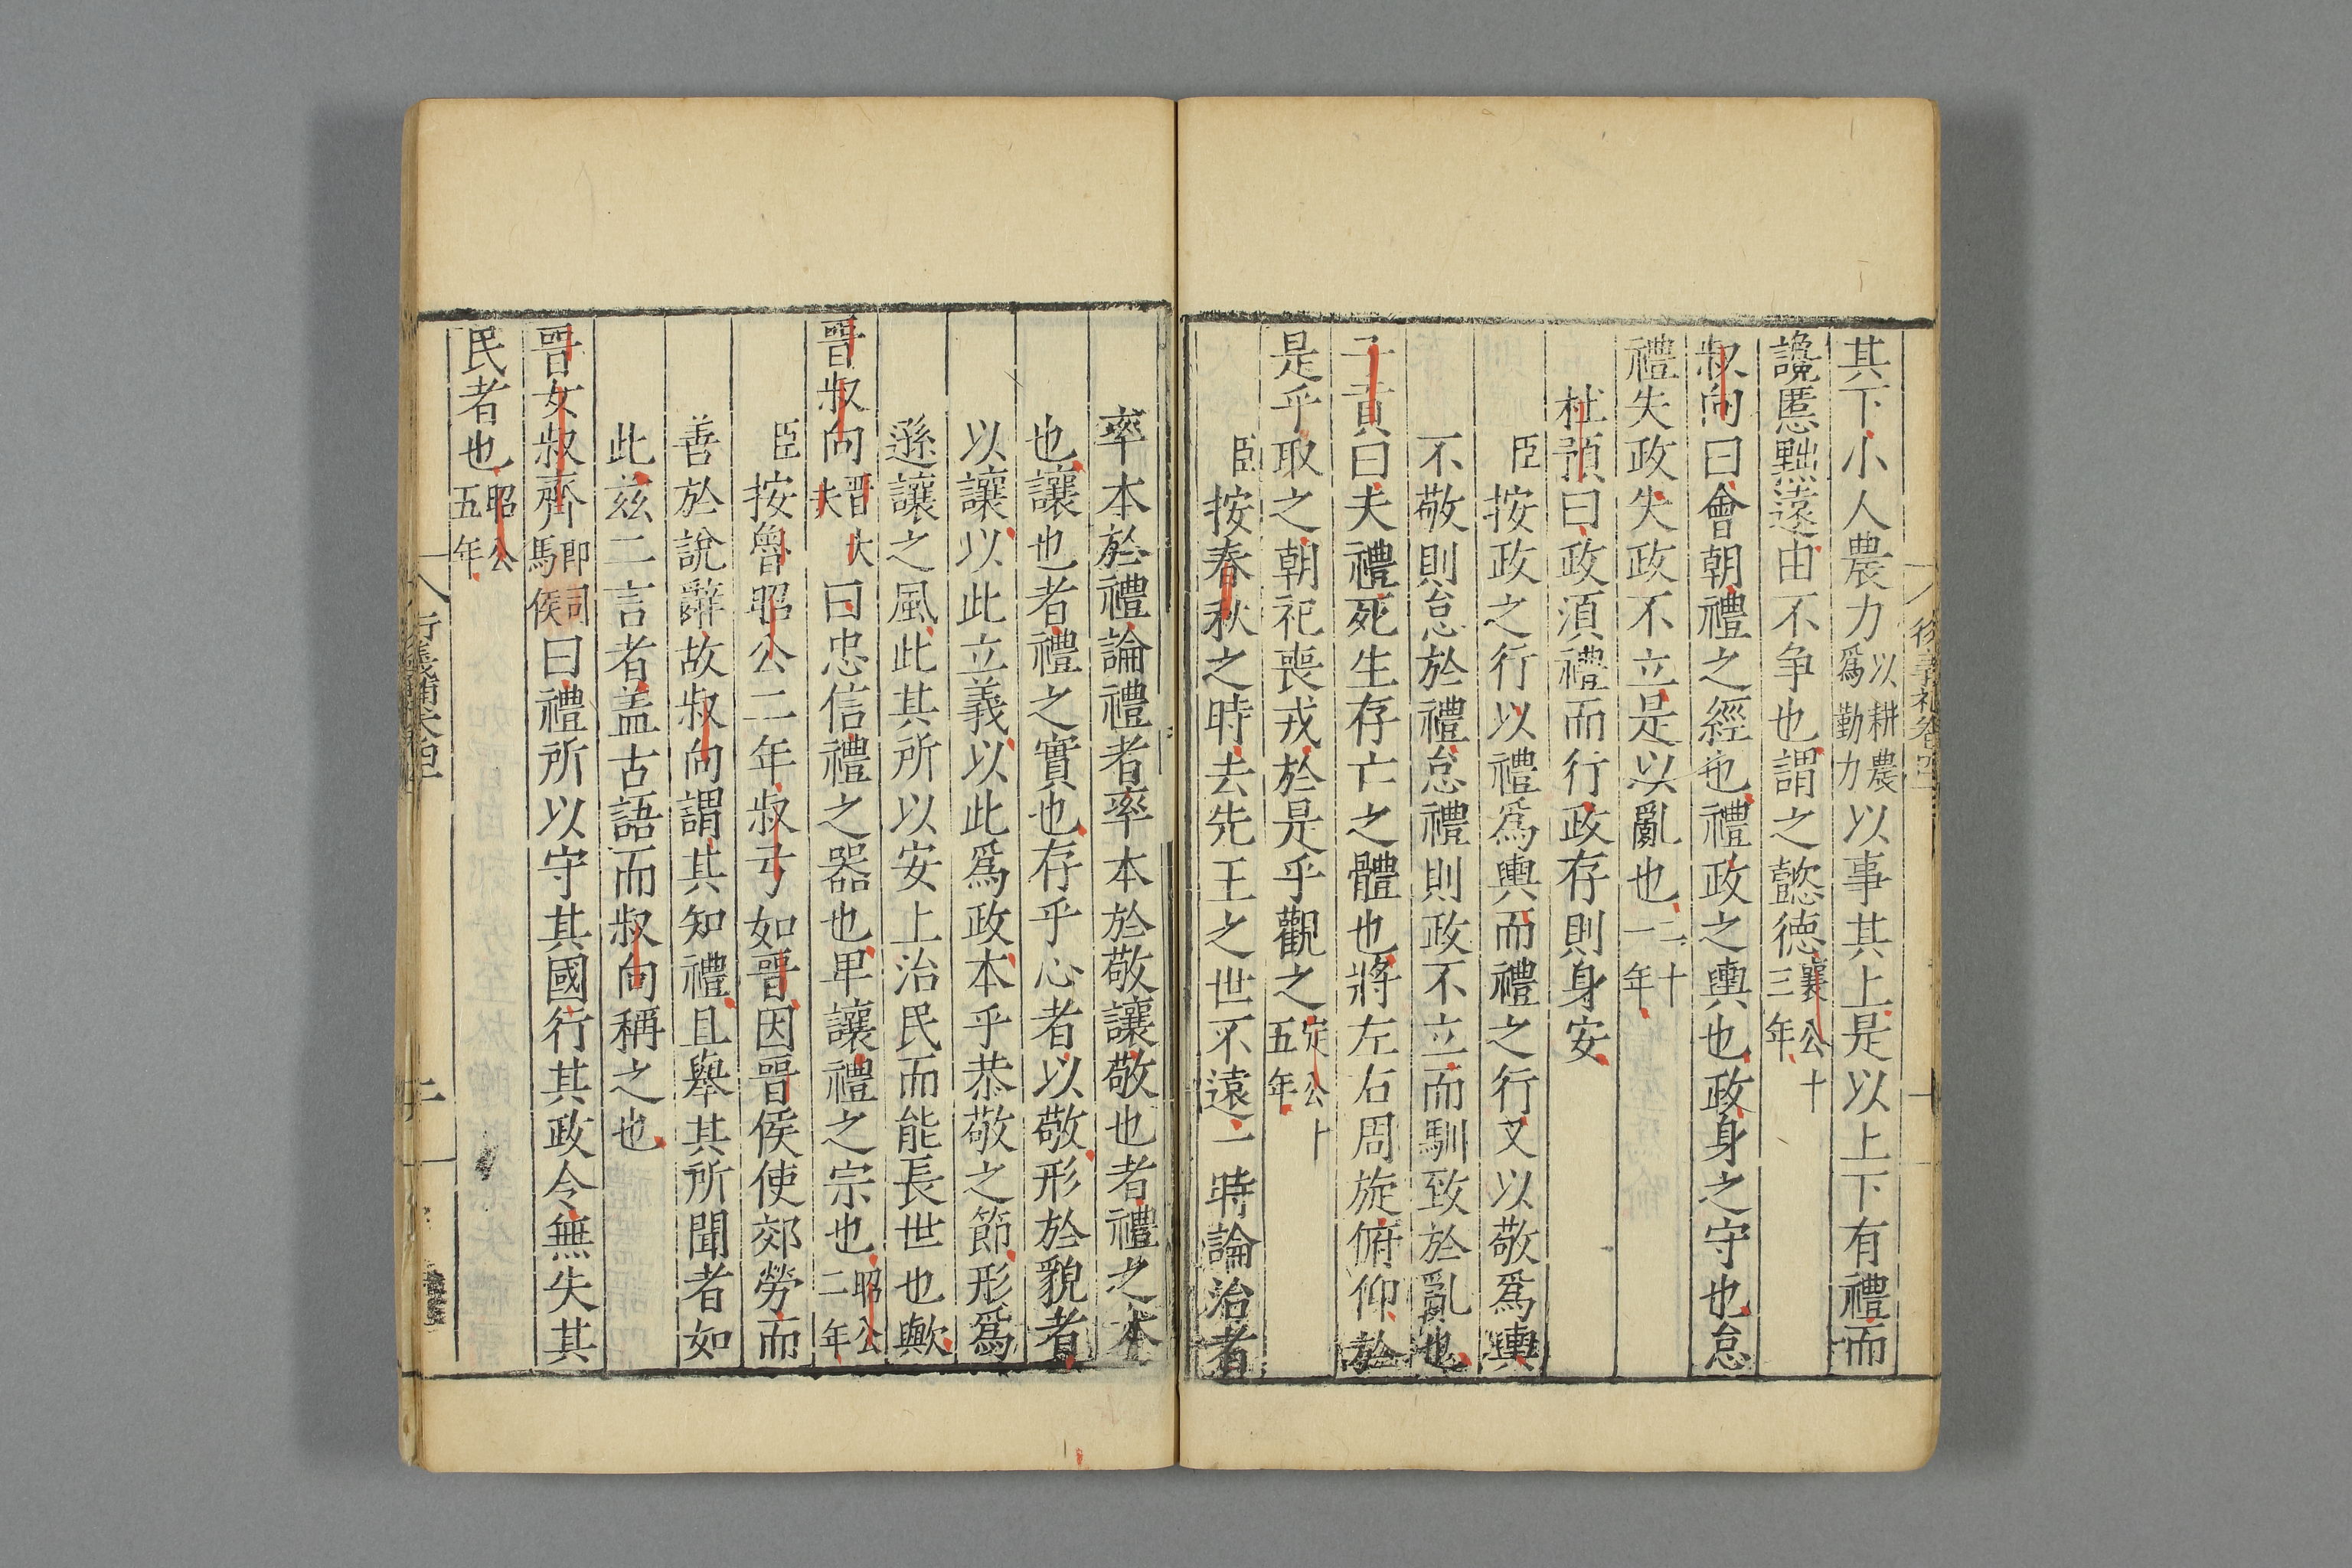 其下小人農力以耕農爲勤力以事其上是以上下有禮而
讒慝黜遠由不争也謂之懿德襄公十三年
叔向曰會朝禮之經也禮政之輿也政身之守也怠
禮失政失政不立是以亂也二十一年
杜預曰政須禮而行政存則身安
臣按政之行以禮爲輿而禮之行又以敬爲輿
不敬則怠於禮怠禮則政不立而馴致於亂也
子貢曰夫禮死生存亡之體也將左右周旋俯仰於
是乎取之朝祀喪戎於是乎觀之定公十五年
臣按春秋之時去先王之世不遠一時論治者
率本於禮論禮者率本於敬讓敬也者禮之本
也讓也者禮之實也存乎心者以敬形於貌者
以讓以此立義以此爲政本乎恭敬之節形爲
遜讓之風此其所以安上治民而能長世也歟
晉叔向晉大夫曰忠信禮之器也卑讓禮之宗也昭公二年
臣按魯昭公二年叔弓如晉因晉侯使郊勞而
善於說辭故叔向謂其知禮且舉其所聞者如
此茲二言者盖古語而叔向稱之也
晉女叔齊即司馬侯曰禮所以守其國行其政令無失其
民者也昭公五年